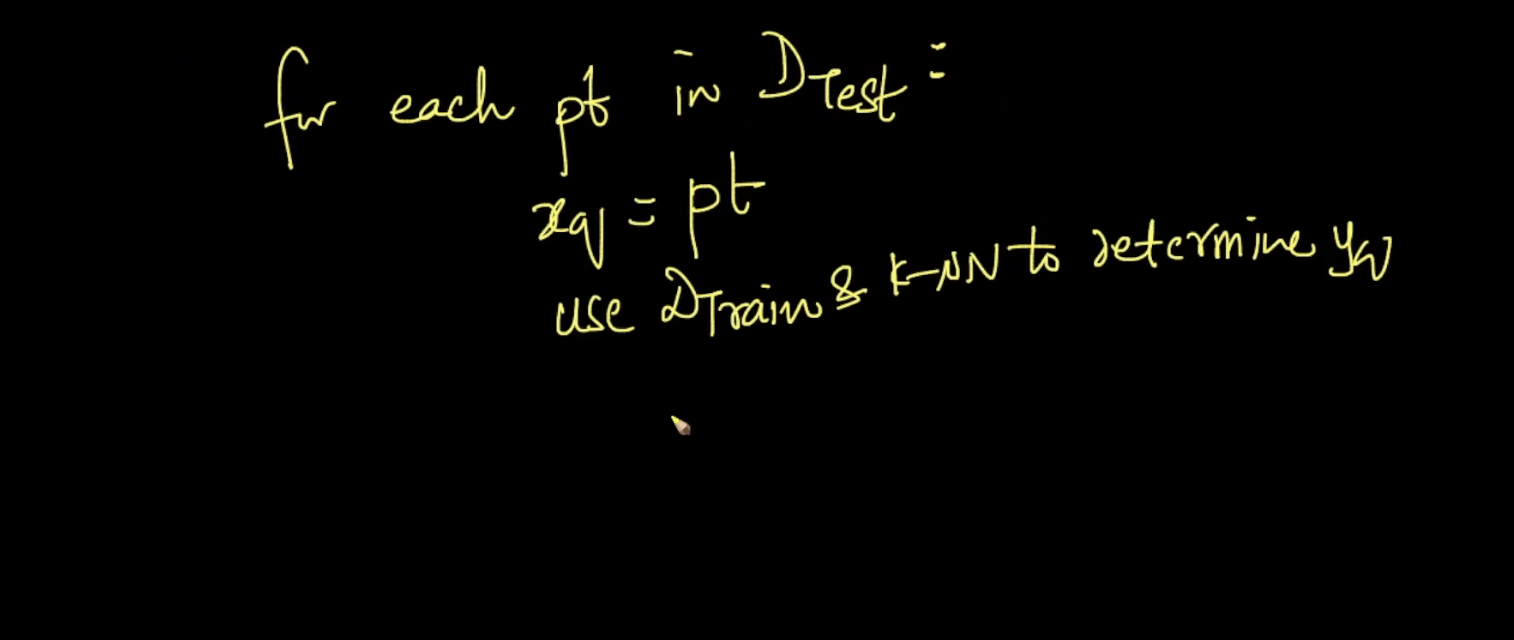 for each pt in DTest:
xq = pt
use DTrain & K-NN to determine yq